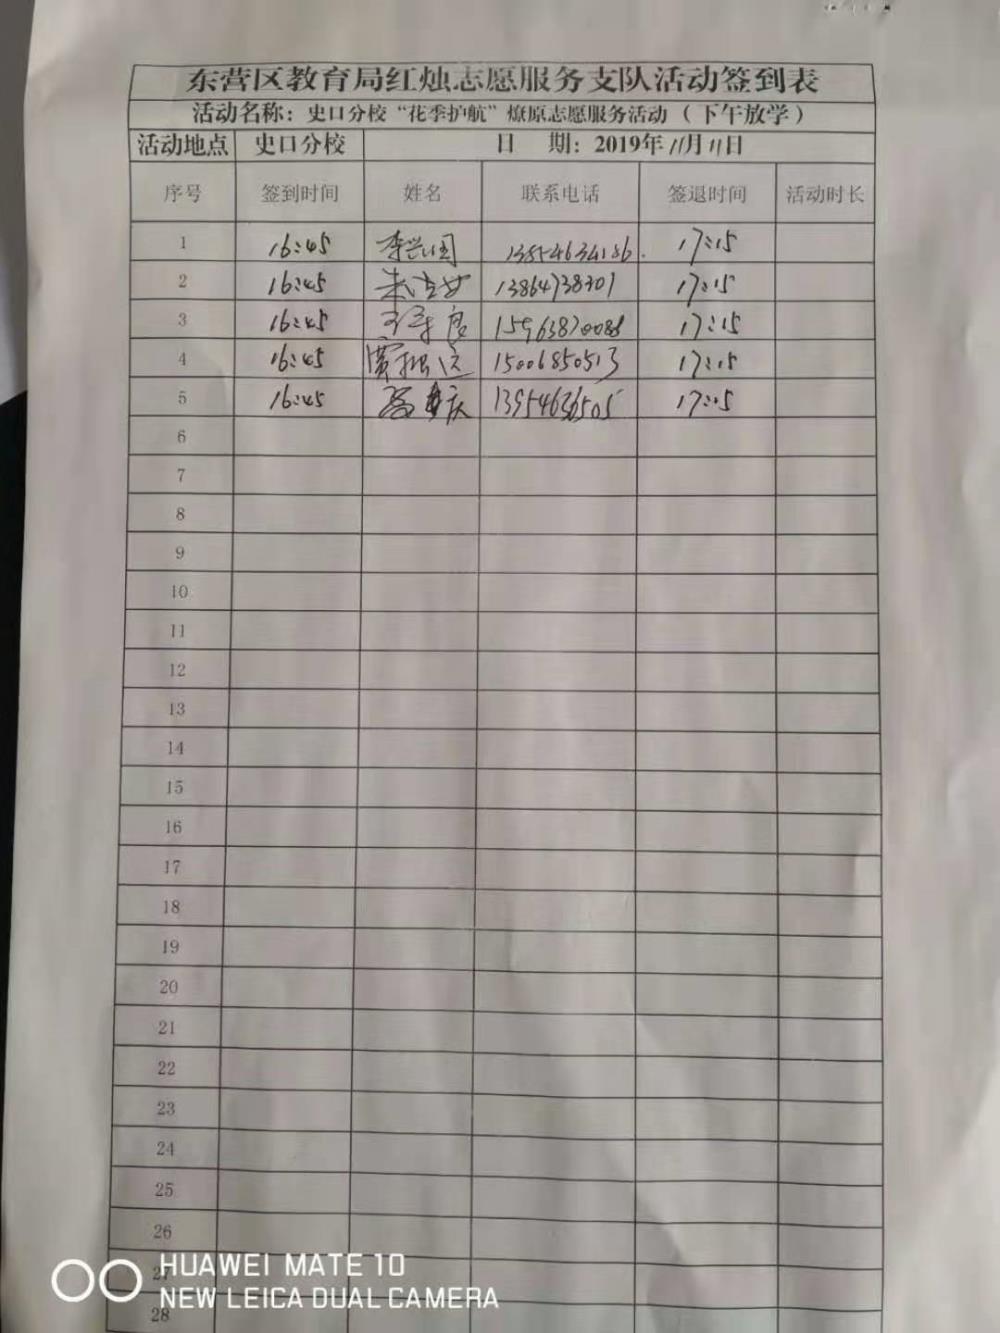 东营区教育局红烛志愿服务支队活动签到表
活动名称：史口分校“花季护航”燎原志愿服务活动（下午放学）
活动地点 史口分校 日 期：2019年11月11日
序号 签到时间 姓名 联系电话 签退时间 活动时长
1 16:45 李兴国 17:15
2 16:45 13864738301 17:15
3 16:45 17:15
4 16:45 15006850513 17:15
5 16:45 13954636505 17:15
6
7
8
9
10
11
12
13
14
15
16
17
18
19
20
21
22
23
24
25
26
27
28
HUAWEI MATE 10
NEW LEICA DUAL CAMERA